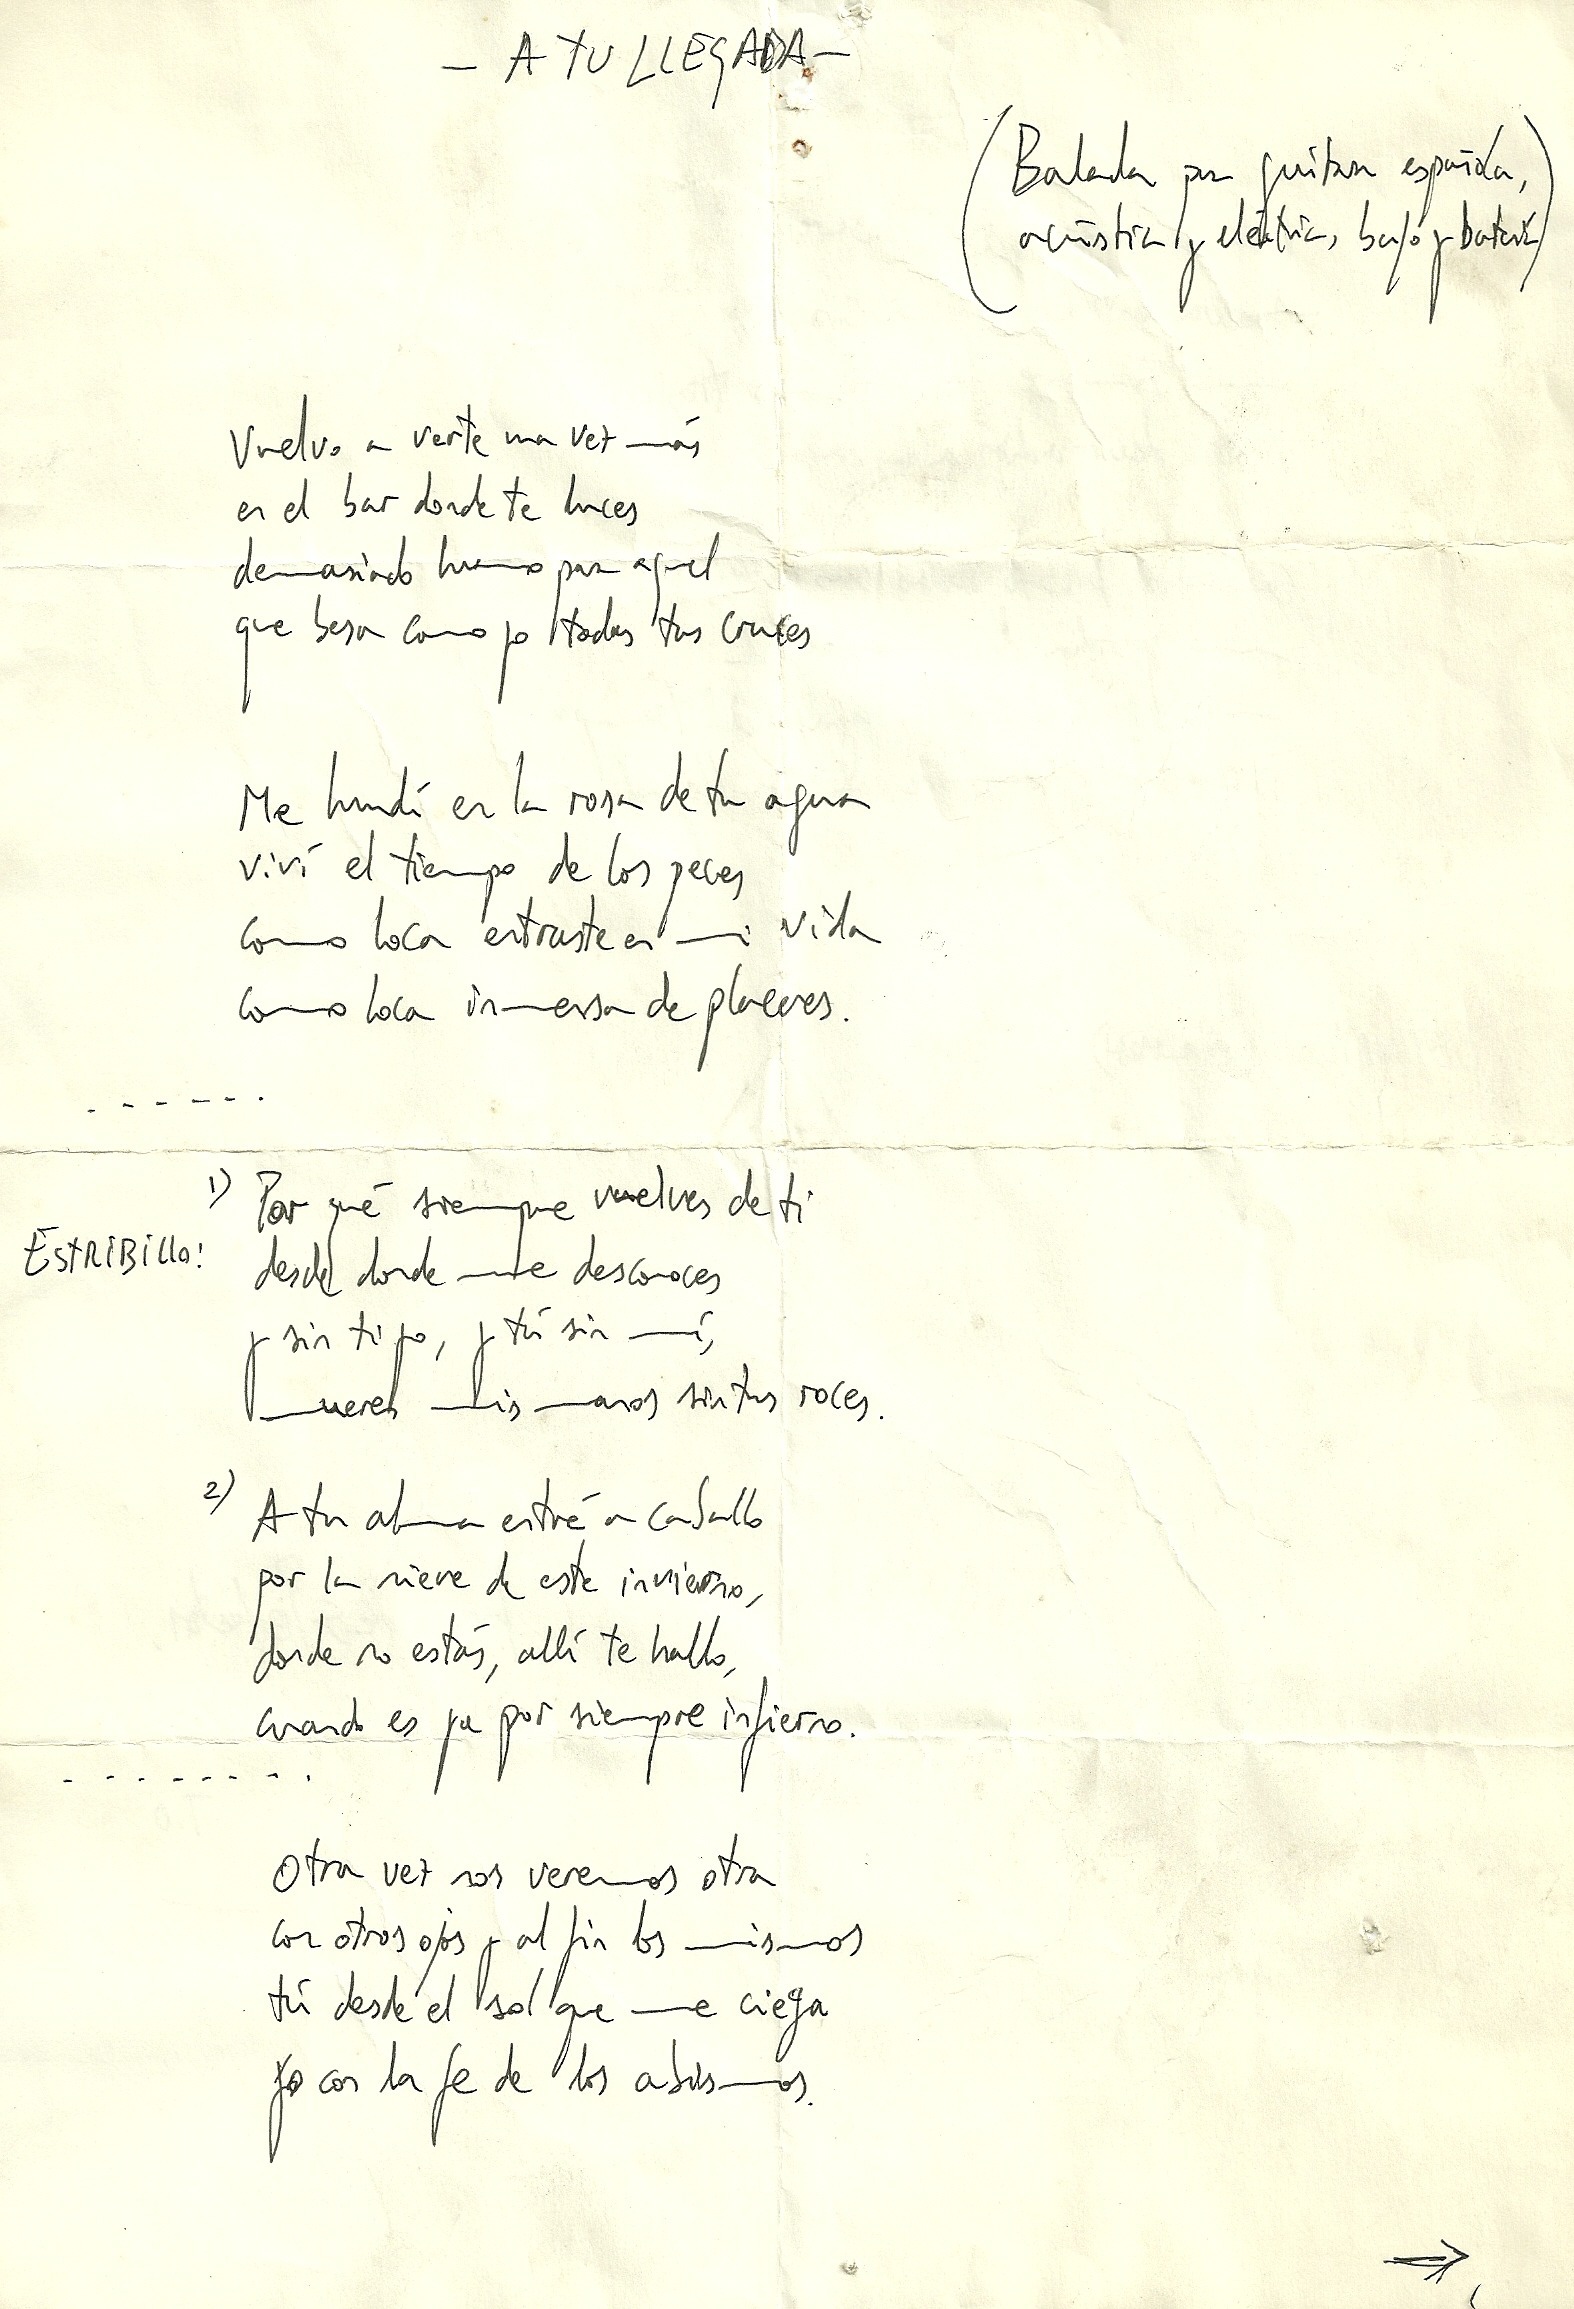 - A TU LLEGADA -
(Balada para guitarra española,
acústica y eléctrica, bajo y batería)
Vuelvo a verte una vez más
en el bar donde te luces
demasiado humo para aquel
que besa como yo todas tus cruces
Me hundí en la rosa de tu agua
viví el tiempo de los peces
como loca entraste en mi vida
como loca inmersa de placeres.
- - - - - -
1) Por qué siempre vuelves de ti
ESTRIBILLO:
desde donde me desconoces
y sin ti yo, y tú sin mí,
mueren mis manos sin tus roces.
2) A tu alma entré a caballo
por la nieve de este invierno,
donde no estás, allí te hallo,
cuando es ya por siempre infierno.
- - - - - - - -
Otra vez nos veremos otra
con otros ojos y al fin los mismos
tú desde el sol que me ciega
yo con la fe de los abismos.
→